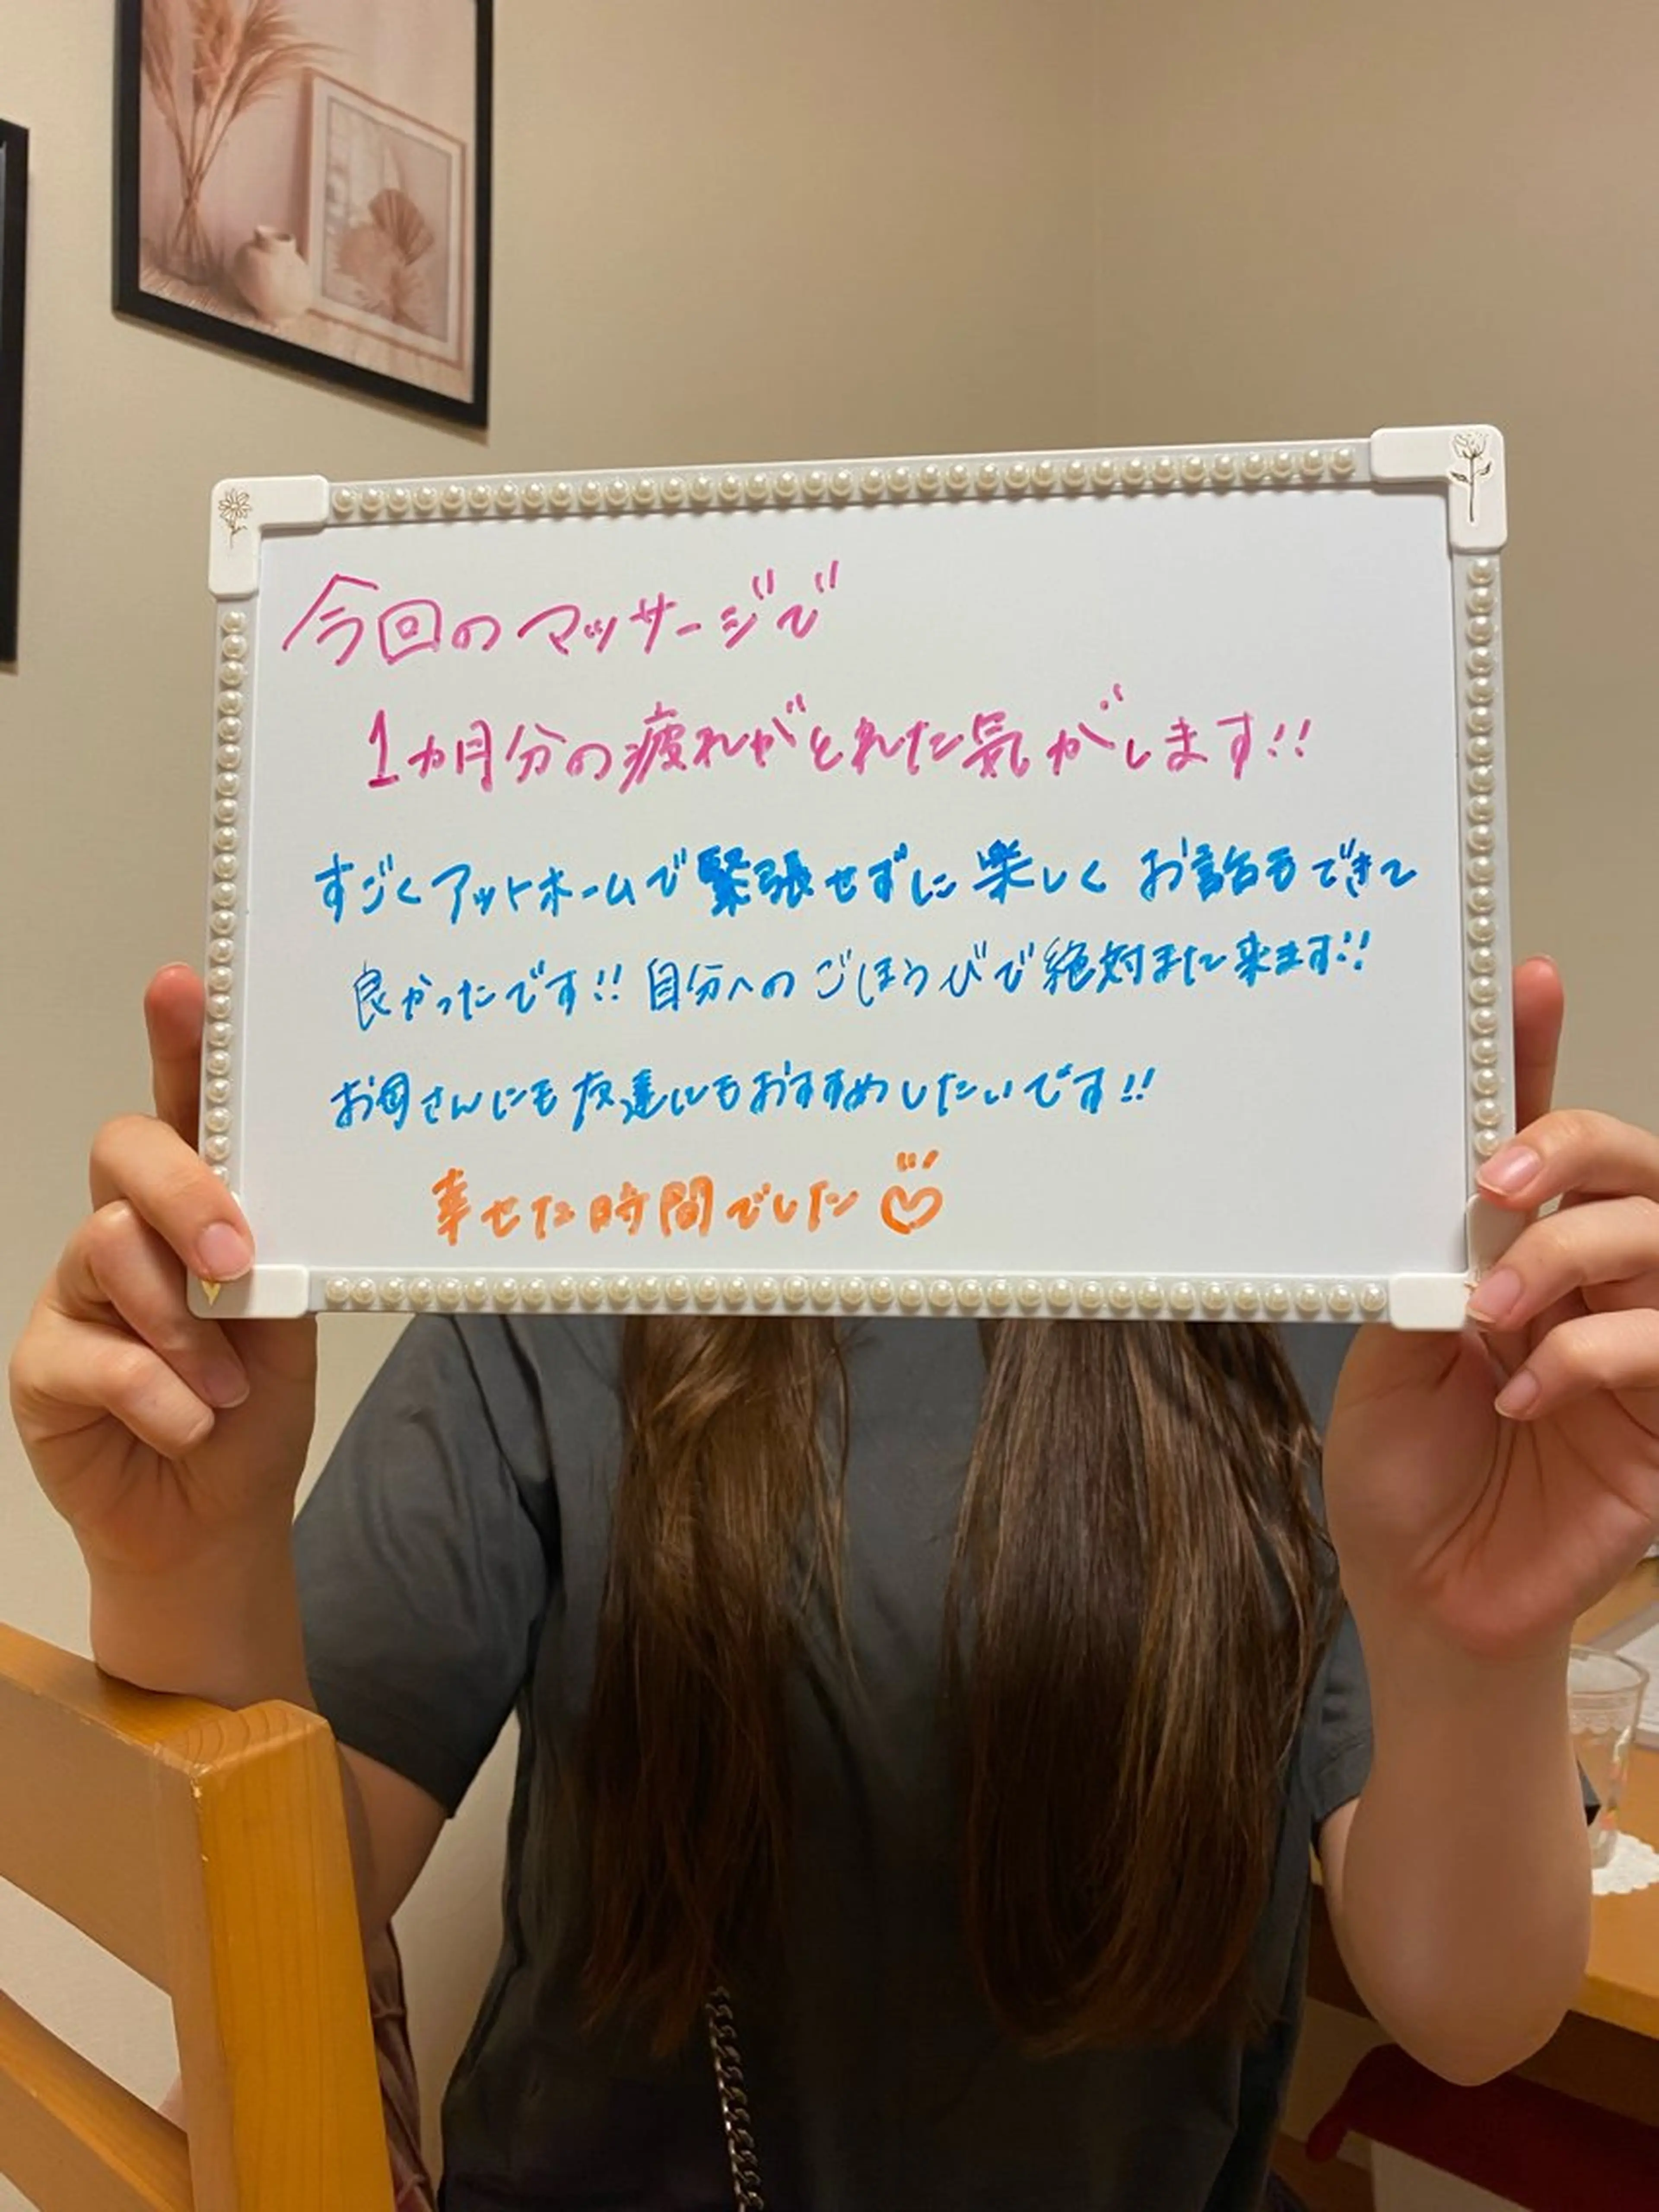 今回のマッサージで
1カ月分の疲れがとれた気がします!!
すごくアットホームで緊張せずに楽しくお話もできて
良かったです!!自分へのごほうびで絶対また来ます!!
お母さんにも友達にもおすすめしたいです!!
幸せな時間でした♡